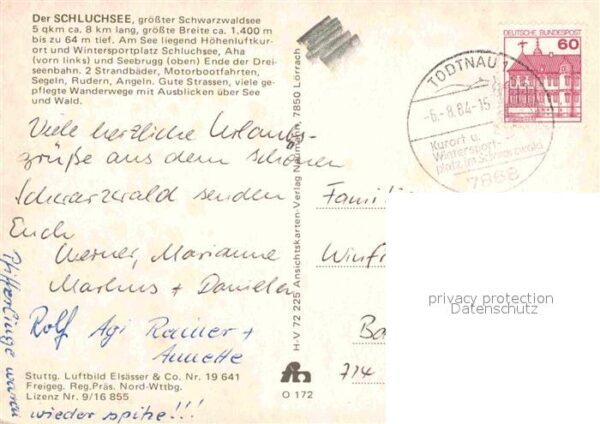 Der SCHLUCHSEE, größter Schwarzwaldsee
5 qkm ca. 8 km lang, größte Breite ca. 1.400 m
bis zu 64 m tief. Am See liegend Höhenluftkur-
ort und Wintersportplatz Schluchsee, Aha
(vorn links) und Seebrugg (oben) Ende der Drei-
seenbahn. 2 Strandbäder, Motorbootfahrten,
Segeln, Rudern, Angeln. Gute Strassen, viele ge-
pflegte Wanderwege mit Ausblicken über See
und Wald.
Viele herzliche Urlaubs-
grüße aus dem schönen
Schwarzwald senden
Euch
Werner, Marianne
Markus + Daniela
Rolf Agi Rainer +
Annette
Pfifferlinge waren
wieder spitze!!!
Stuttg. Luftbild Elsässer & Co. Nr. 19 641
Freigeg. Reg.Präs. Nord-Wttbg.
Lizenz Nr. 9/16 855
H-V 72 225 Ansichtskarten-Verlag Neumann, 7850 Lörrach
O 172
DEUTSCHE BUNDESPOST
60
TODTNAU 1
-6.-8.84-15
Kurort u.
Wintersport-
platz im Schwarzwald
7868
Famili
Winf
Ba
714
privacy protection
Datenschutz